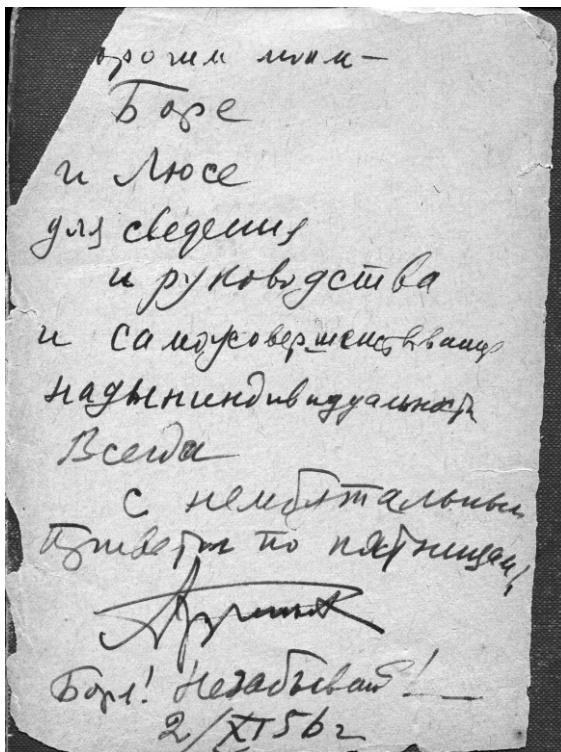 дорогим моим —
Боре
и Люсе
для сведения
и руководства
и самоусовершенствования
надындивидуальности
Всегда
с
приветом по пятницам
Боря! Не забывай!
2/XI 56 г